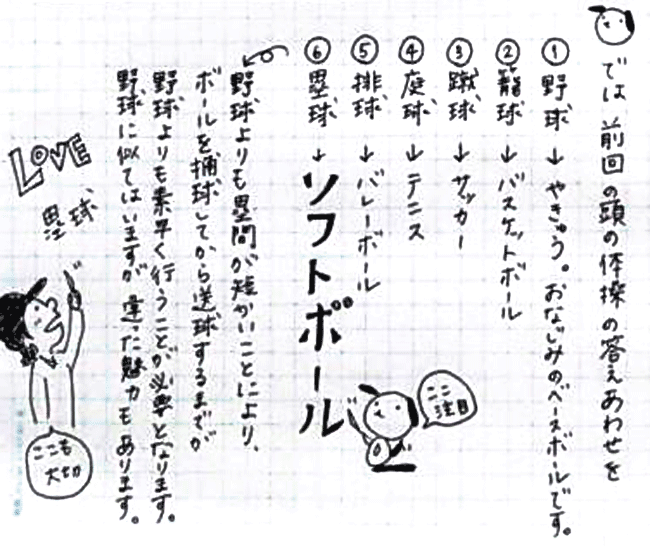 では前回の頭の体操の答えあわせを
①野球→やきゅう。おなじみのベースボールです。
②籠球→バスケットボール
③蹴球→サッカー
④庭球→テニス
⑤排球→バレーボール
⑥塁球→ソフトボール
ここ注目
野球よりも塁間が短かいことにより、
ボールを捕球してから送球するまでが
野球よりも素早く行うことが必要となります。
野球に似てはいますが違った魅力もあります。
LOVE
塁球
ここも
大切